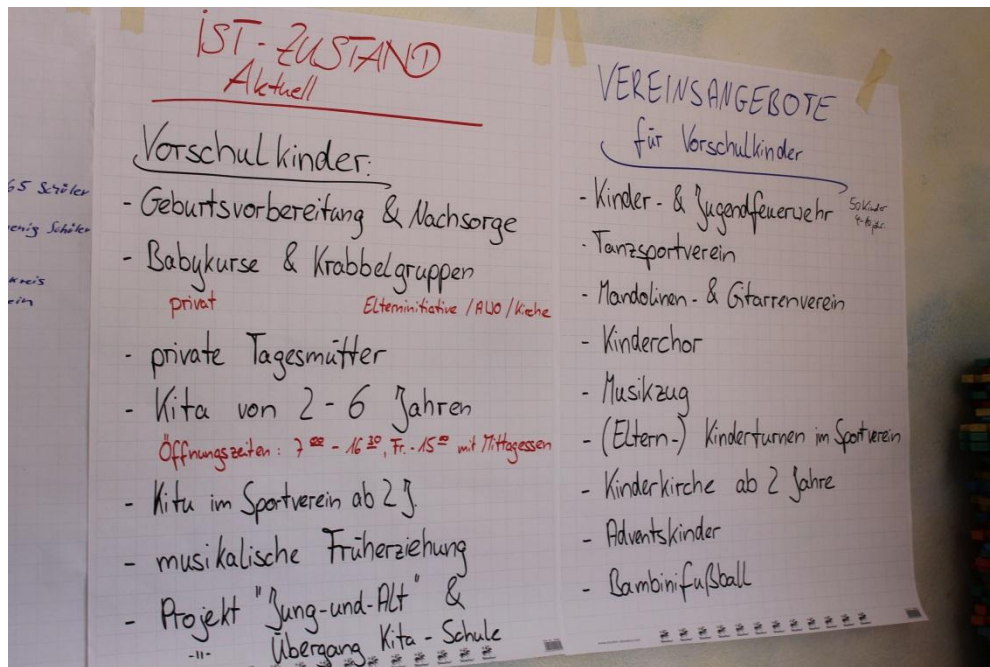 65 Schüler
wenig Schüler
kreis
ein
IST-ZUSTAND
Aktuell
Vorschulkinder:
- Geburtsvorbereitung & Nachsorge
- Babykurse & Krabbelgruppen
privat Elterninitiative / AWO / Kirche
- private Tagesmütter
- Kita von 2-6 Jahren
Öffnungszeiten: 7 00 - 16 30, Fr. - 15 00 mit Mittagessen
- Kitu im Sportverein ab 2 J.
- musikalische Früherziehung
- Projekt "Jung-und-Alt" &
-"- Übergang Kita - Schule
VEREINSANGEBOTE
für Vorschulkinder
- Kinder- & Jugendfeuerwehr 50 Kinder
- Tanzsportverein
- Mandolinen- & Gitarrenverein
- Kinderchor
- Musikzug
- (Eltern-) Kinderturnen im Sportverein
- Kinderkirche ab 2 Jahre
- Adventskinder
- Bambinifußball